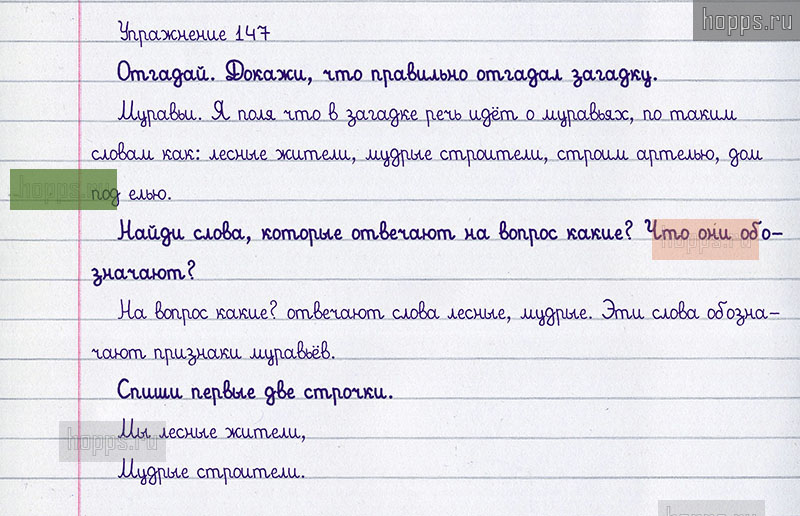 hopps.ru
Упражнение 147
Отгадай. Докажи, что правильно отгадал загадку.
Муравьи. Я поля что в загадке речь идёт о муравьях, по таким
словам как: лесные жители, мудрые строители, строим артелью, дом
hopps.ru
под елью.
Найди слова, которые отвечают на вопрос какие? Что они обо-
hopps.ru
значают?
На вопрос какие? отвечают слова лесные, мудрые. Эти слова обозна-
чают признаки муравьёв.
Спиши первые две строчки.
Мы лесные жители,
hopps.ru
Мудрые строители.
hopps.ru